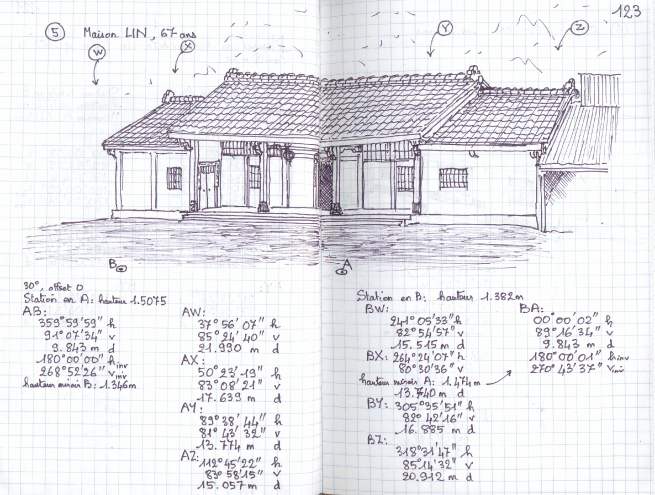 123
5 Maison LIN, 67 ans
W
X
Y
Z
B
A
30°, offset 0
Station en A: hauteur 1.5075
AB:
359°59'59" h
91°07'34" v
9.843 m d
180°00'00" h inv
268°52'26" v inv
hauteur miroir B: 1.346m
AW:
37°56'07" h
85°24'40" v
21.990 m d
AX:
50°23'19" h
83°08'21" v
17.639 m d
AY:
89°38'44" h
81°43'32" v
13.774 m d
AZ: 112°45'22" h
83°58'15" v
15.057 m d
Station en B: hauteur 1.382m
BW:
241°05'33" h
82°54'57" v
15.515 m d
BX: 264°24'07" h
80°30'36" v
hauteur miroir A: 1.474m
13.740 m d
BY: 305°35'51" h
82°42'16" v
16.885 m d
BZ:
318°31'47" h
85°14'32" v
20.912 m d
BA:
00°00'02" h
89°16'34" v
9.843 m d
180°00'01" h inv
270°43'37" v inv